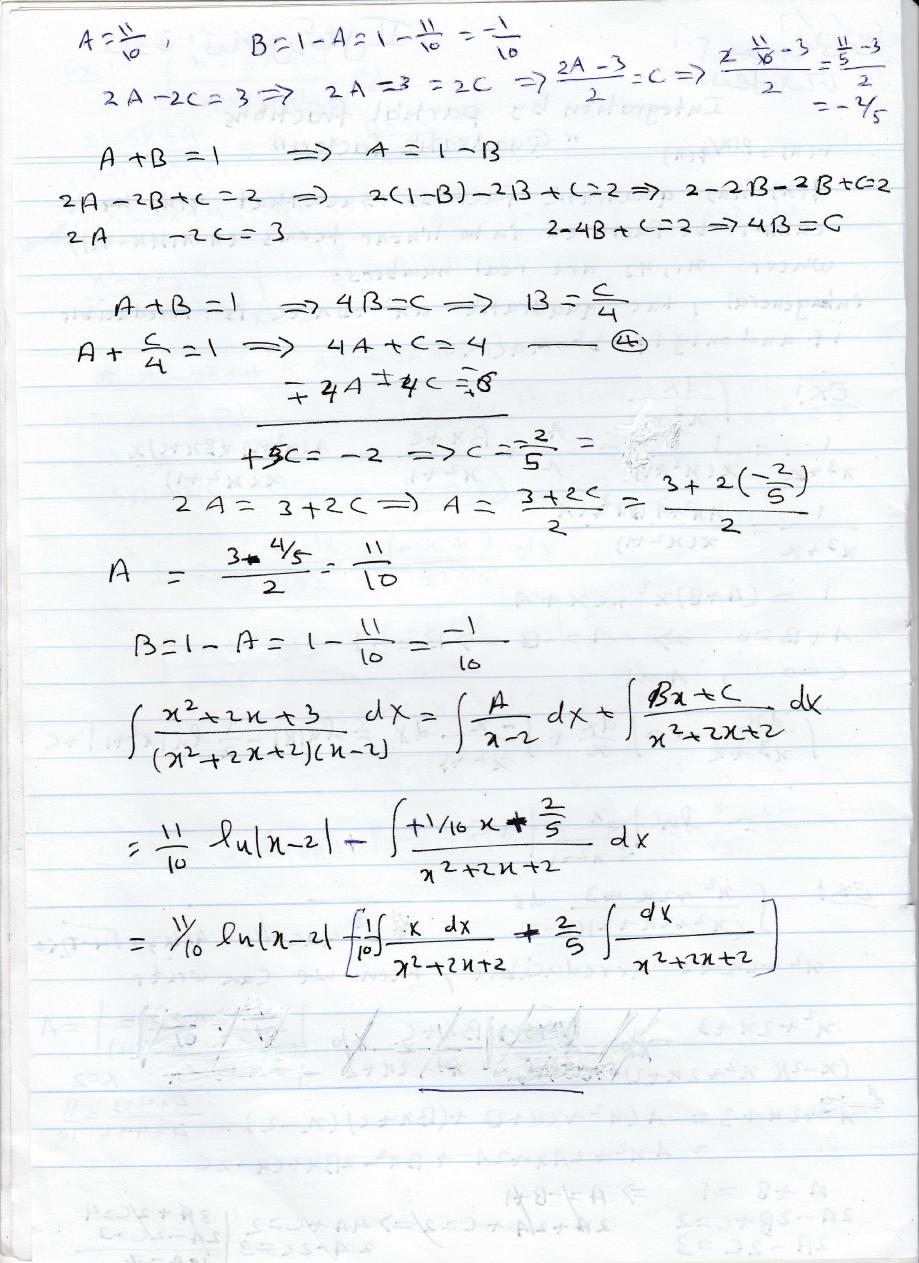 A = 11/10 , B = 1 - A = 1 - 11/10 = -1/10
2A - 2C = 3 => 2A - 3 = 2C => (2A - 3)/2 = C => (2 11/10 - 3)/2 = (11/5 - 3)/2
= -2/5
A + B = 1 => A = 1 - B
2A - 2B + C = 2 => 2(1-B) - 2B + C = 2 => 2 - 2B - 2B + C = 2
2A - 2C = 3 2 - 4B + C = 2 => 4B = C
A + B = 1 => 4B = C => B = C/4
A + C/4 = 1 => 4A + C = 4 —— ④
∓ 4A ∓ 4C = 6
+5C = -2 => C = -2/5 =
2A = 3 + 2C => A = (3 + 2C)/2 = (3 + 2(-2/5))/2
A = (3 - 4/5)/2 = 11/10
B = 1 - A = 1 - 11/10 = -1/10
∫ (x² + 2x + 3)/((x² + 2x + 2)(x-2)) dx = ∫ A/(x-2) dx + ∫ (Bx + C)/(x² + 2x + 2) dx
= 11/10 ln|x-2| - ∫ (+1/10 x + 2/5)/(x² + 2x + 2) dx
= 11/10 ln|x-2| - [1/10 ∫ x dx/(x² + 2x + 2) + 2/5 ∫ dx/(x² + 2x + 2)]